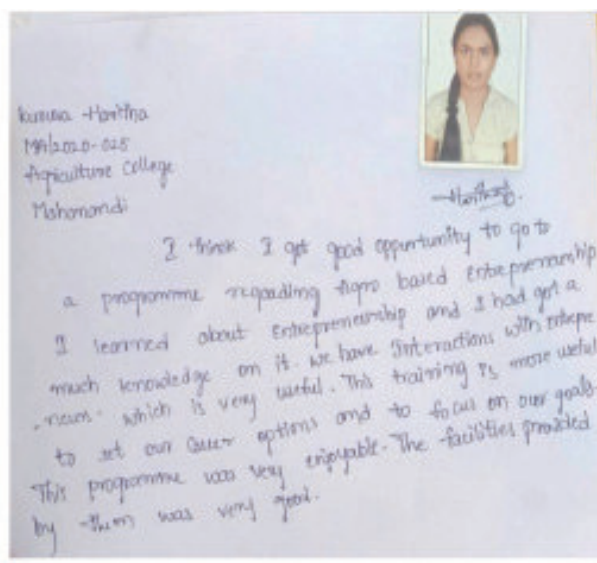 Haritha
MA/2020-025
Agriculture college
Mahanandi
I think I got good oppurtunity to go to
a programme regarding Agro based Entrepreneurship
I learned about Entrepreneurship and I had got a
much knowledge on it. we have Interactions with entrepre
-neurs. which is very useful. This training is more useful
to set our career options and to focus on our goals.
This programme was very enjoyable. The facilities provided
by them was very good.